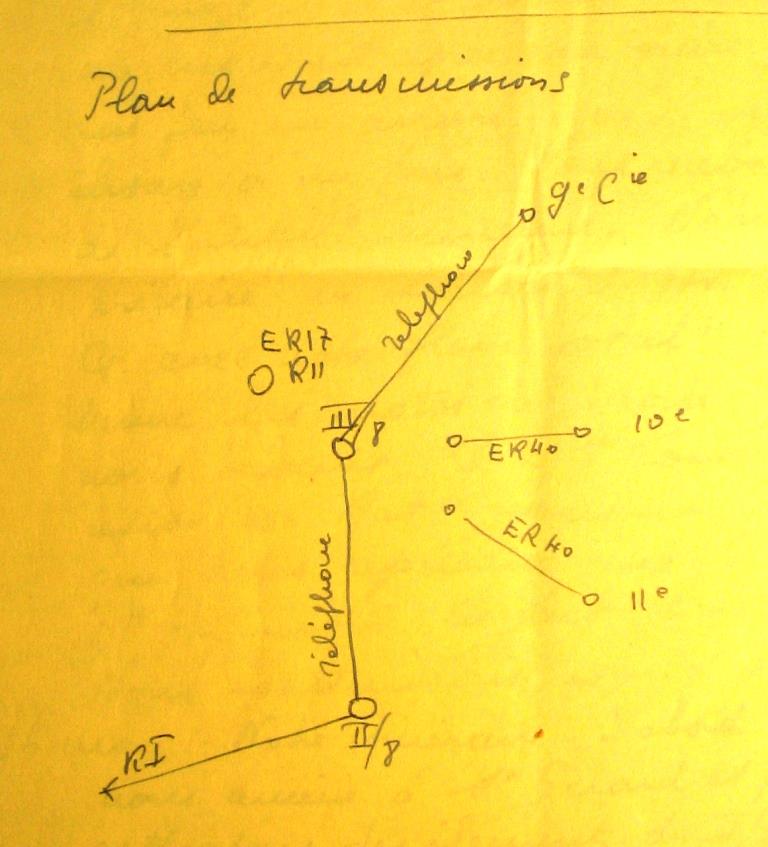 Plan de transmissions
9e Cie
Téléphone
ER17
R11
III/8
10e
ER40
ER40
11e
Téléphone
II/8
RI